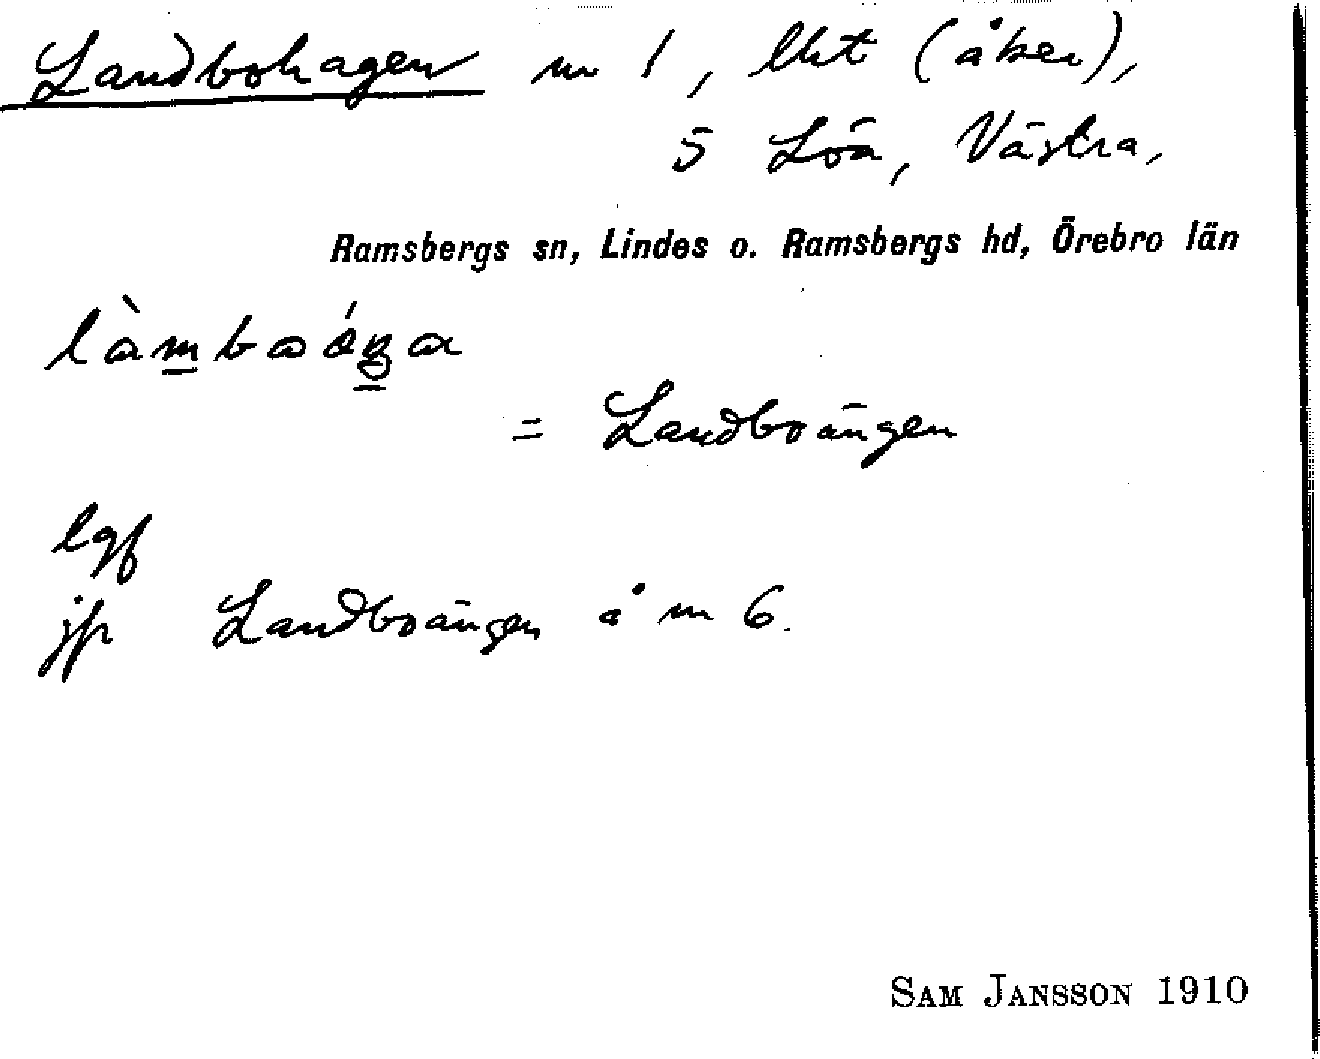 Landbohagen nr 1, lht (åker),
5 Löa, Västra,
Ramsbergs sn, Lindes o. Ramsbergs hd, Örebro län
= Landboängen
lgf
jfr Landboängen å nr 6.
SAM JANSSON 1910